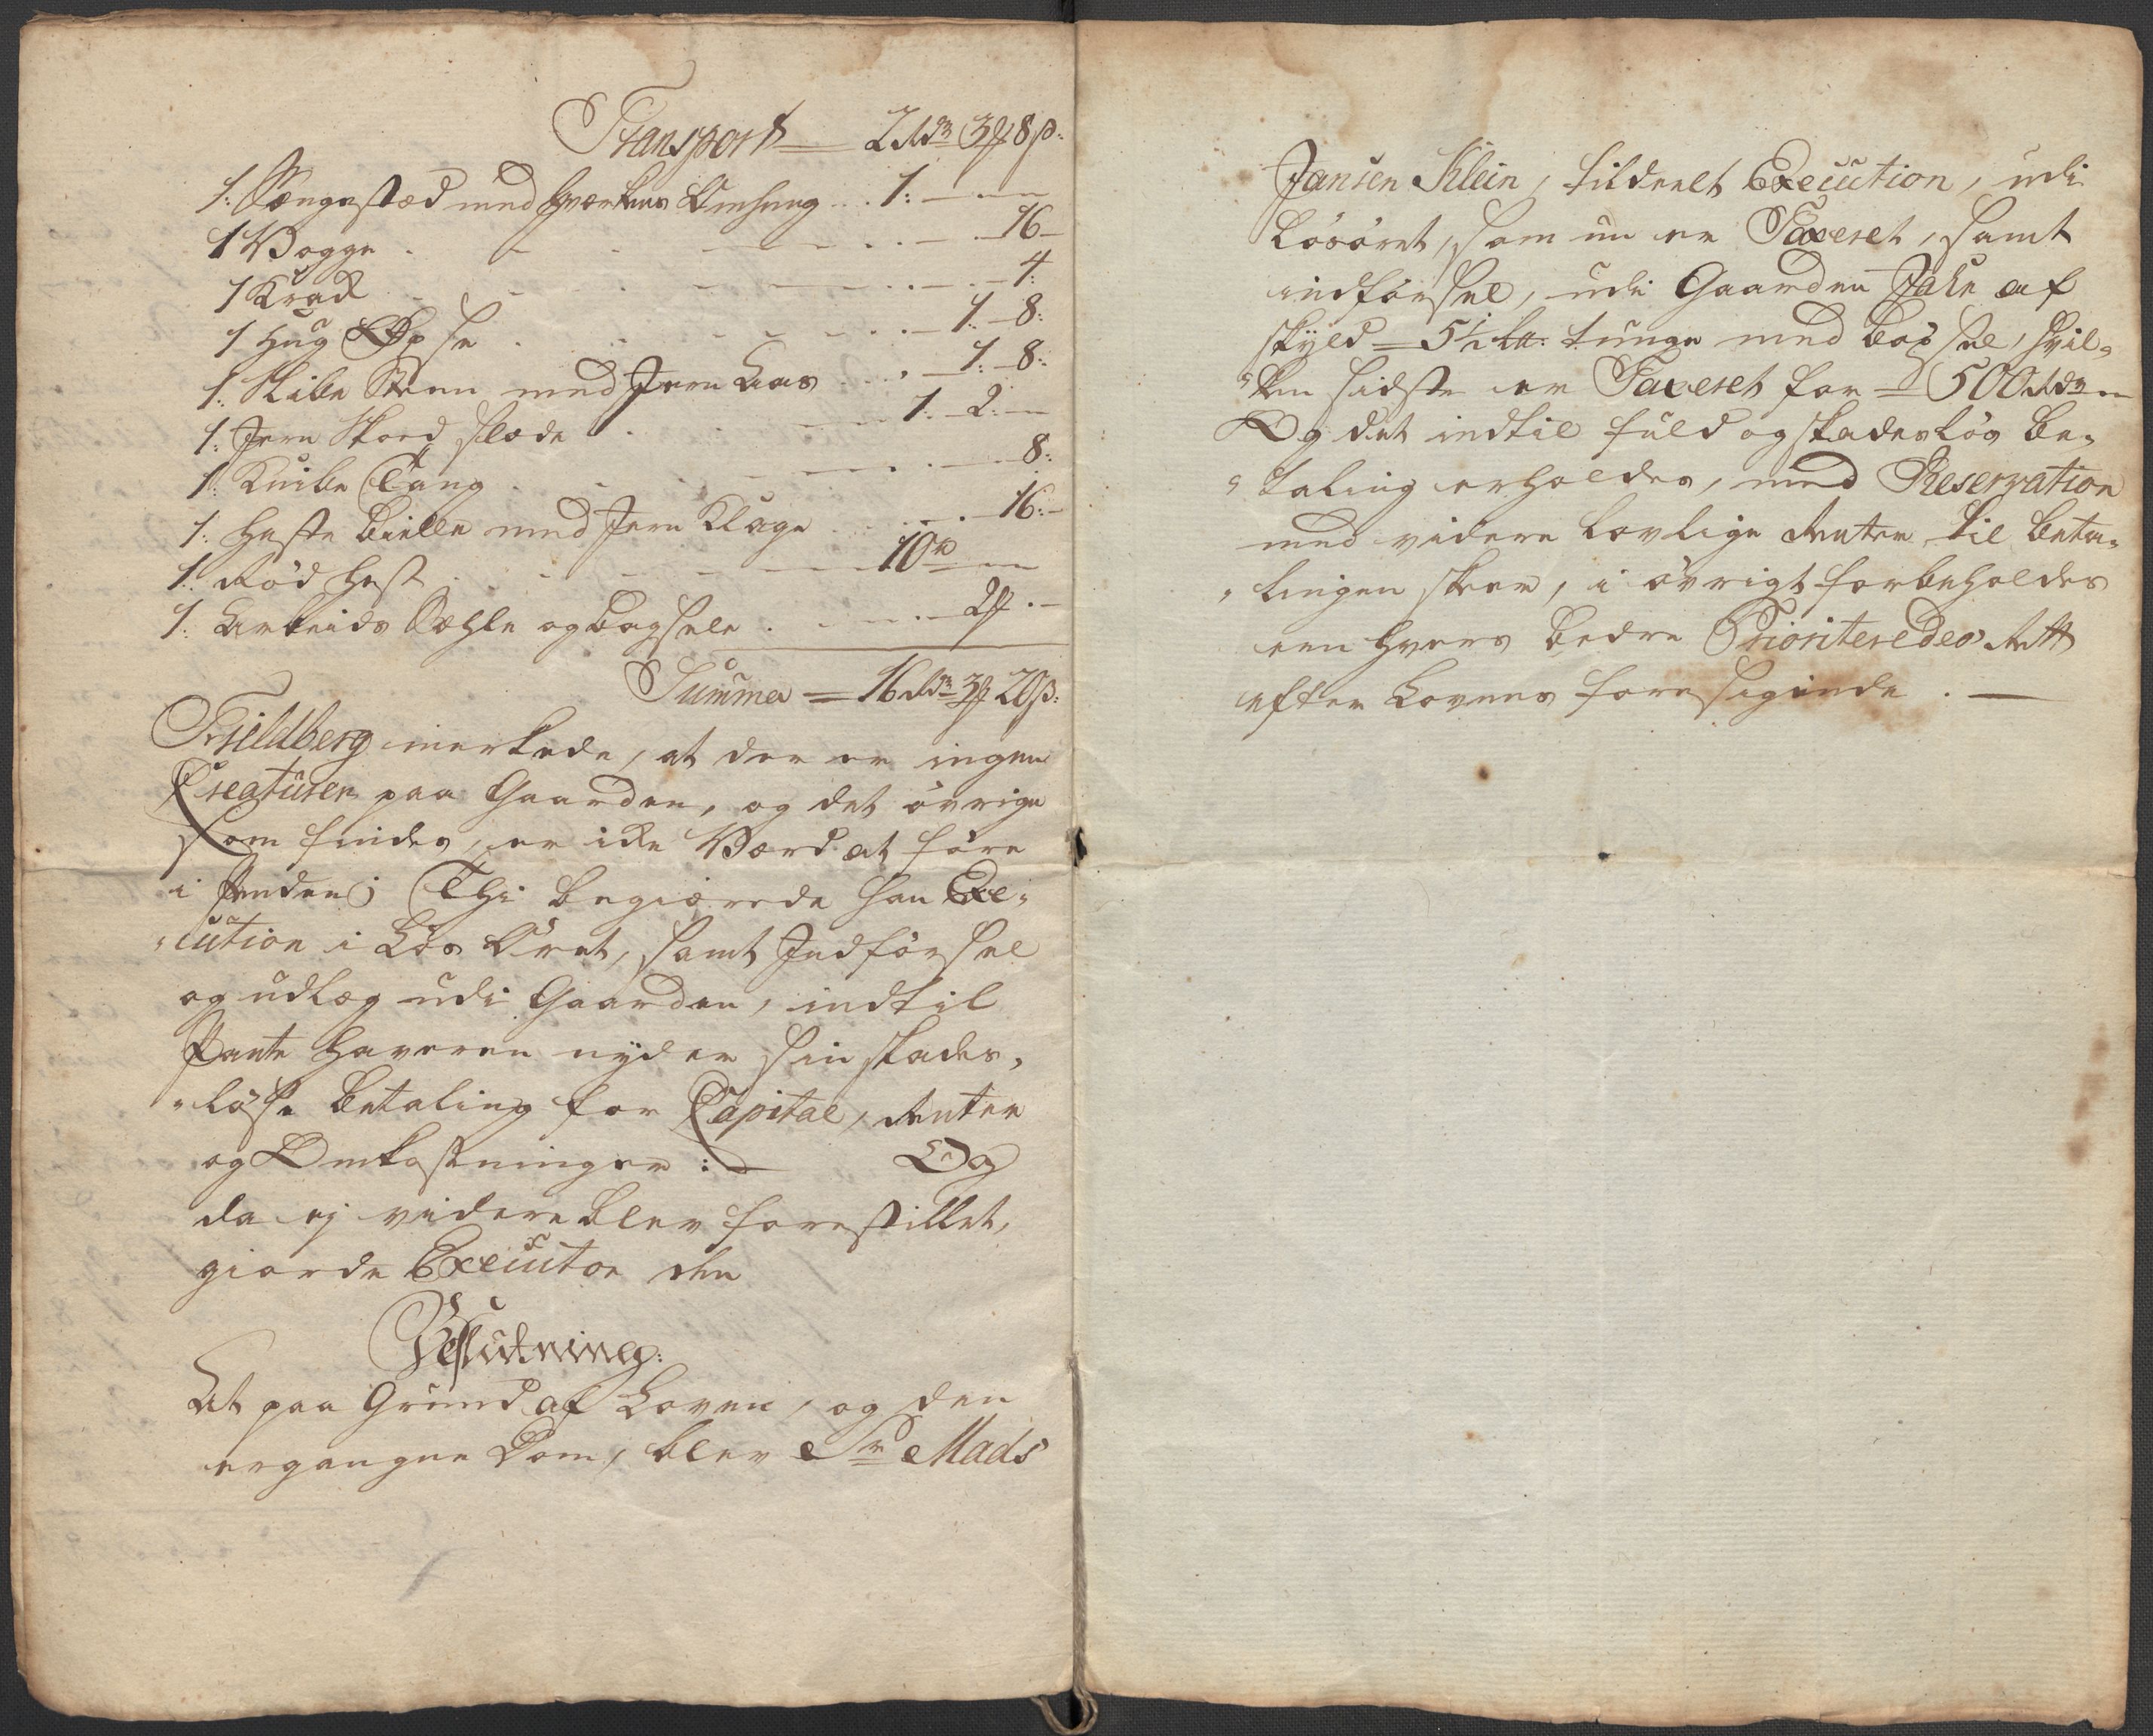 Transport = 2 Rdr 3 ƒ 8 ß:
1. Sængestæd med Hværken Omheng .. 1: —
1 Vogge . - . - — 16 —
1 Krak . - . - — 4:
1 Hug Øxse . - — 1. — 8:
1. Slibe Steen med Jern Laas ... — 1. — 8:
1. Jern Skoed Slæde . - — 1. — 2: —
1. Knibe Tang . - — 8:
1. Heste Bielle med Jern Klage . - — 16: —
1. Rød Hest . - — 10 R —
1. Arbeids Sæhle og Bagsele . - — 2 ƒ . —
Summa = 16 Rdr 3 ƒ 20 ß:
Fieldberg merkede, at der er ingen
Creaturer paa Gaarden, og det øvrige
som findes, er ike Værd at føre
i Penden; Thi begiærede han Exe-
cution i Løs Øret, samt Indførsel
og udlæg udi Gaarden, indtil
Pante Haveren nyder sin skades,
løsse Betaling for Capital, Renter
og Omkostninger :— Og
da ej videre blev forestillet,
giorde Executor den
Slutning:
At paa Grund af Loven, og den
ergangne Dom, blev Sr Mads
Jansen Klein, tildeelt Execution, udi
Løsøret, som nu er Taxeret, samt
indførsel, udi Gaarden af
skyld = 5½ tunge med boxsel, hvil-
ken sidste er Taxeret for = 500 Rdr —
Og det indtil fuld og skadesløs Be-
taling erholdes, med Reservation
med videre Lovlige Renter til beta-
lingen skeer, i øvrigt forbeholdes
een hvers bedre Prioriteredes Rett
efter Lovens foresigende . —